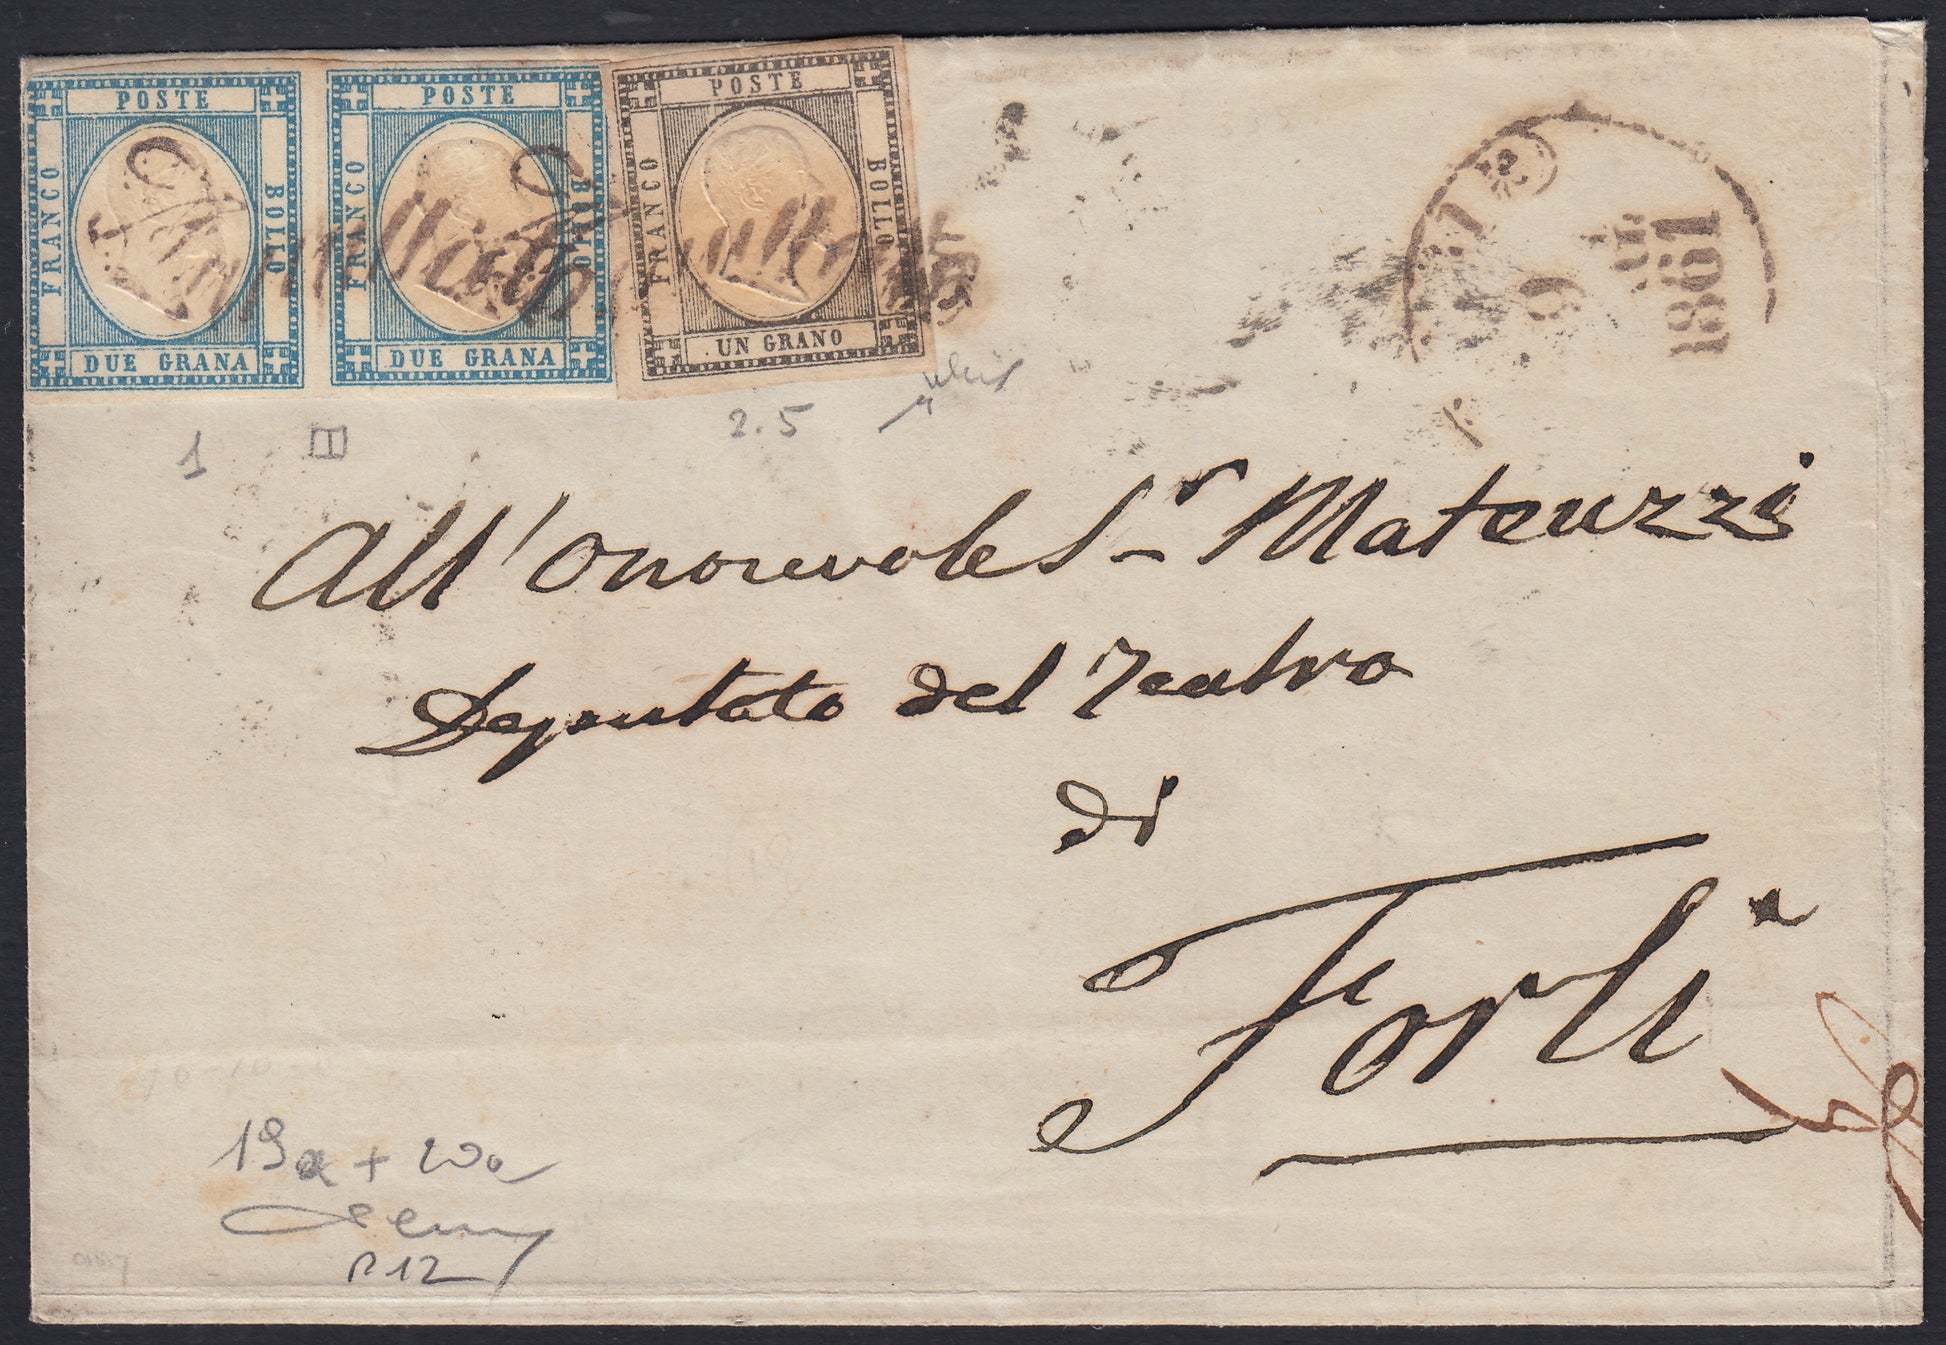 POSTE
FRANCO
BOLLO
DUE GRANA
POSTE
FRANCO
BOLLO
DUE GRANA
POSTE
FRANCO
BOLLO
UN GRANO
Annullato
Annullato
9
1861
1
2.5
All'Onorevole Sr Mateuzzi
Deputato del Teatro
di
Forlì
19a + 20a
R12